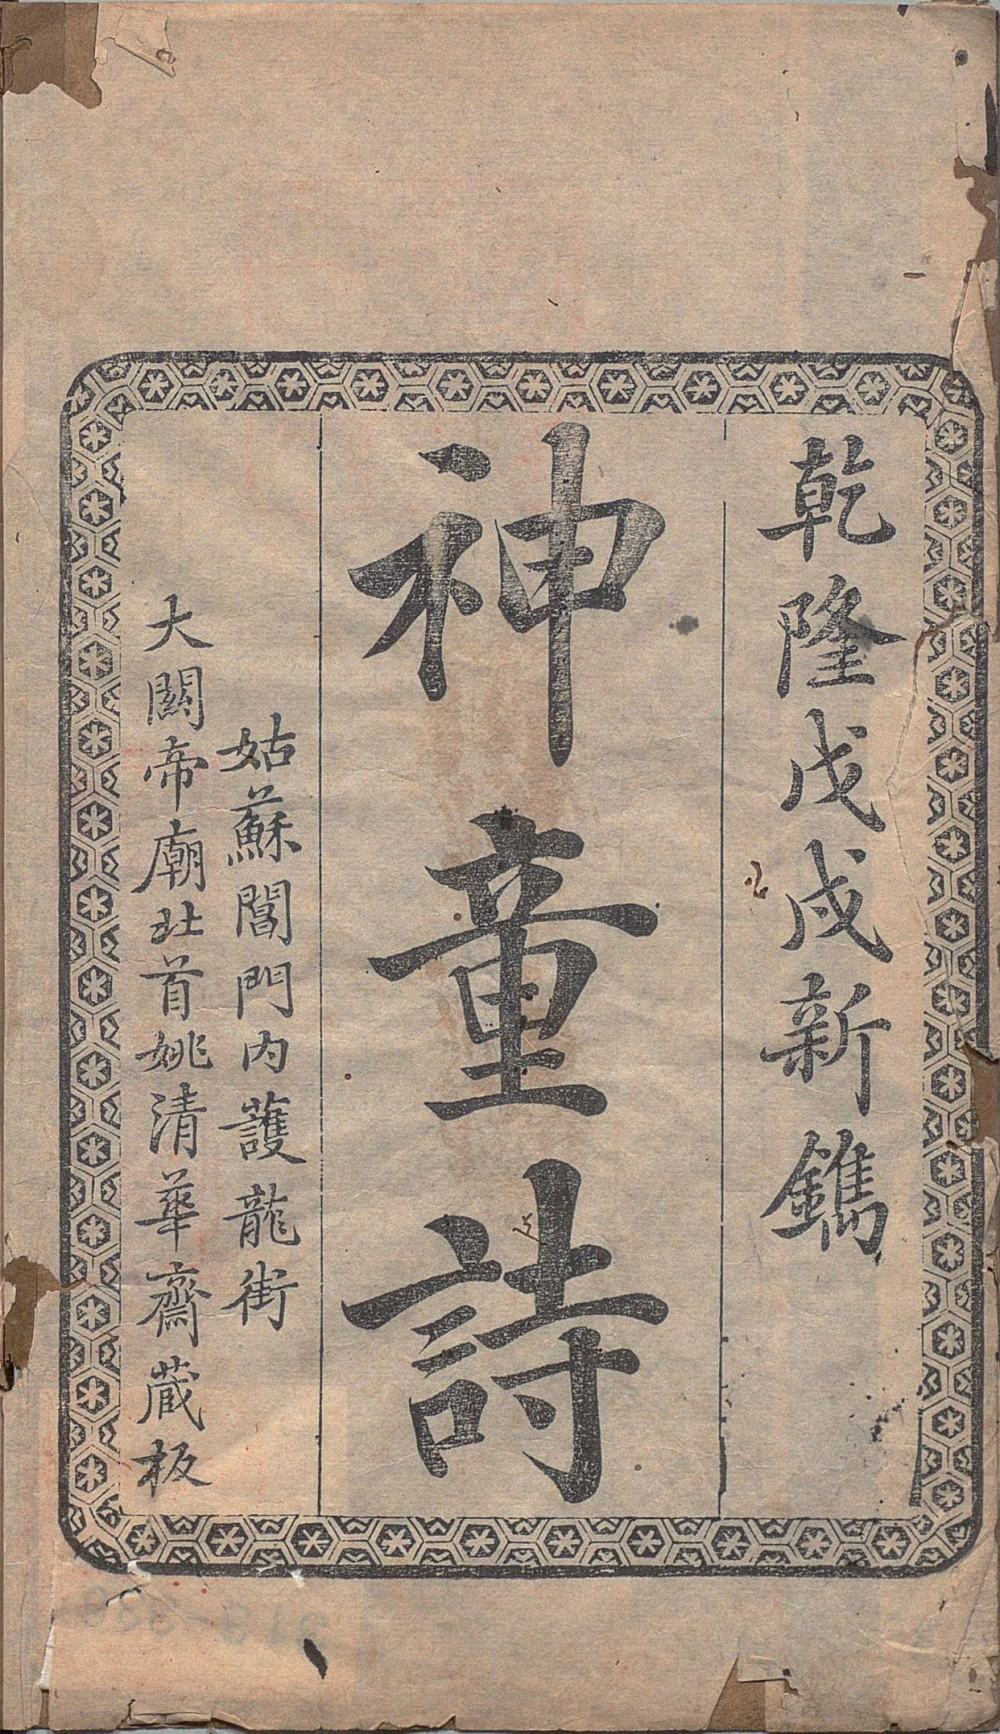 乾隆戊戌新鐫
神童詩
姑蘇閶門內護龍街
大關帝廟北首姚清華齋藏板